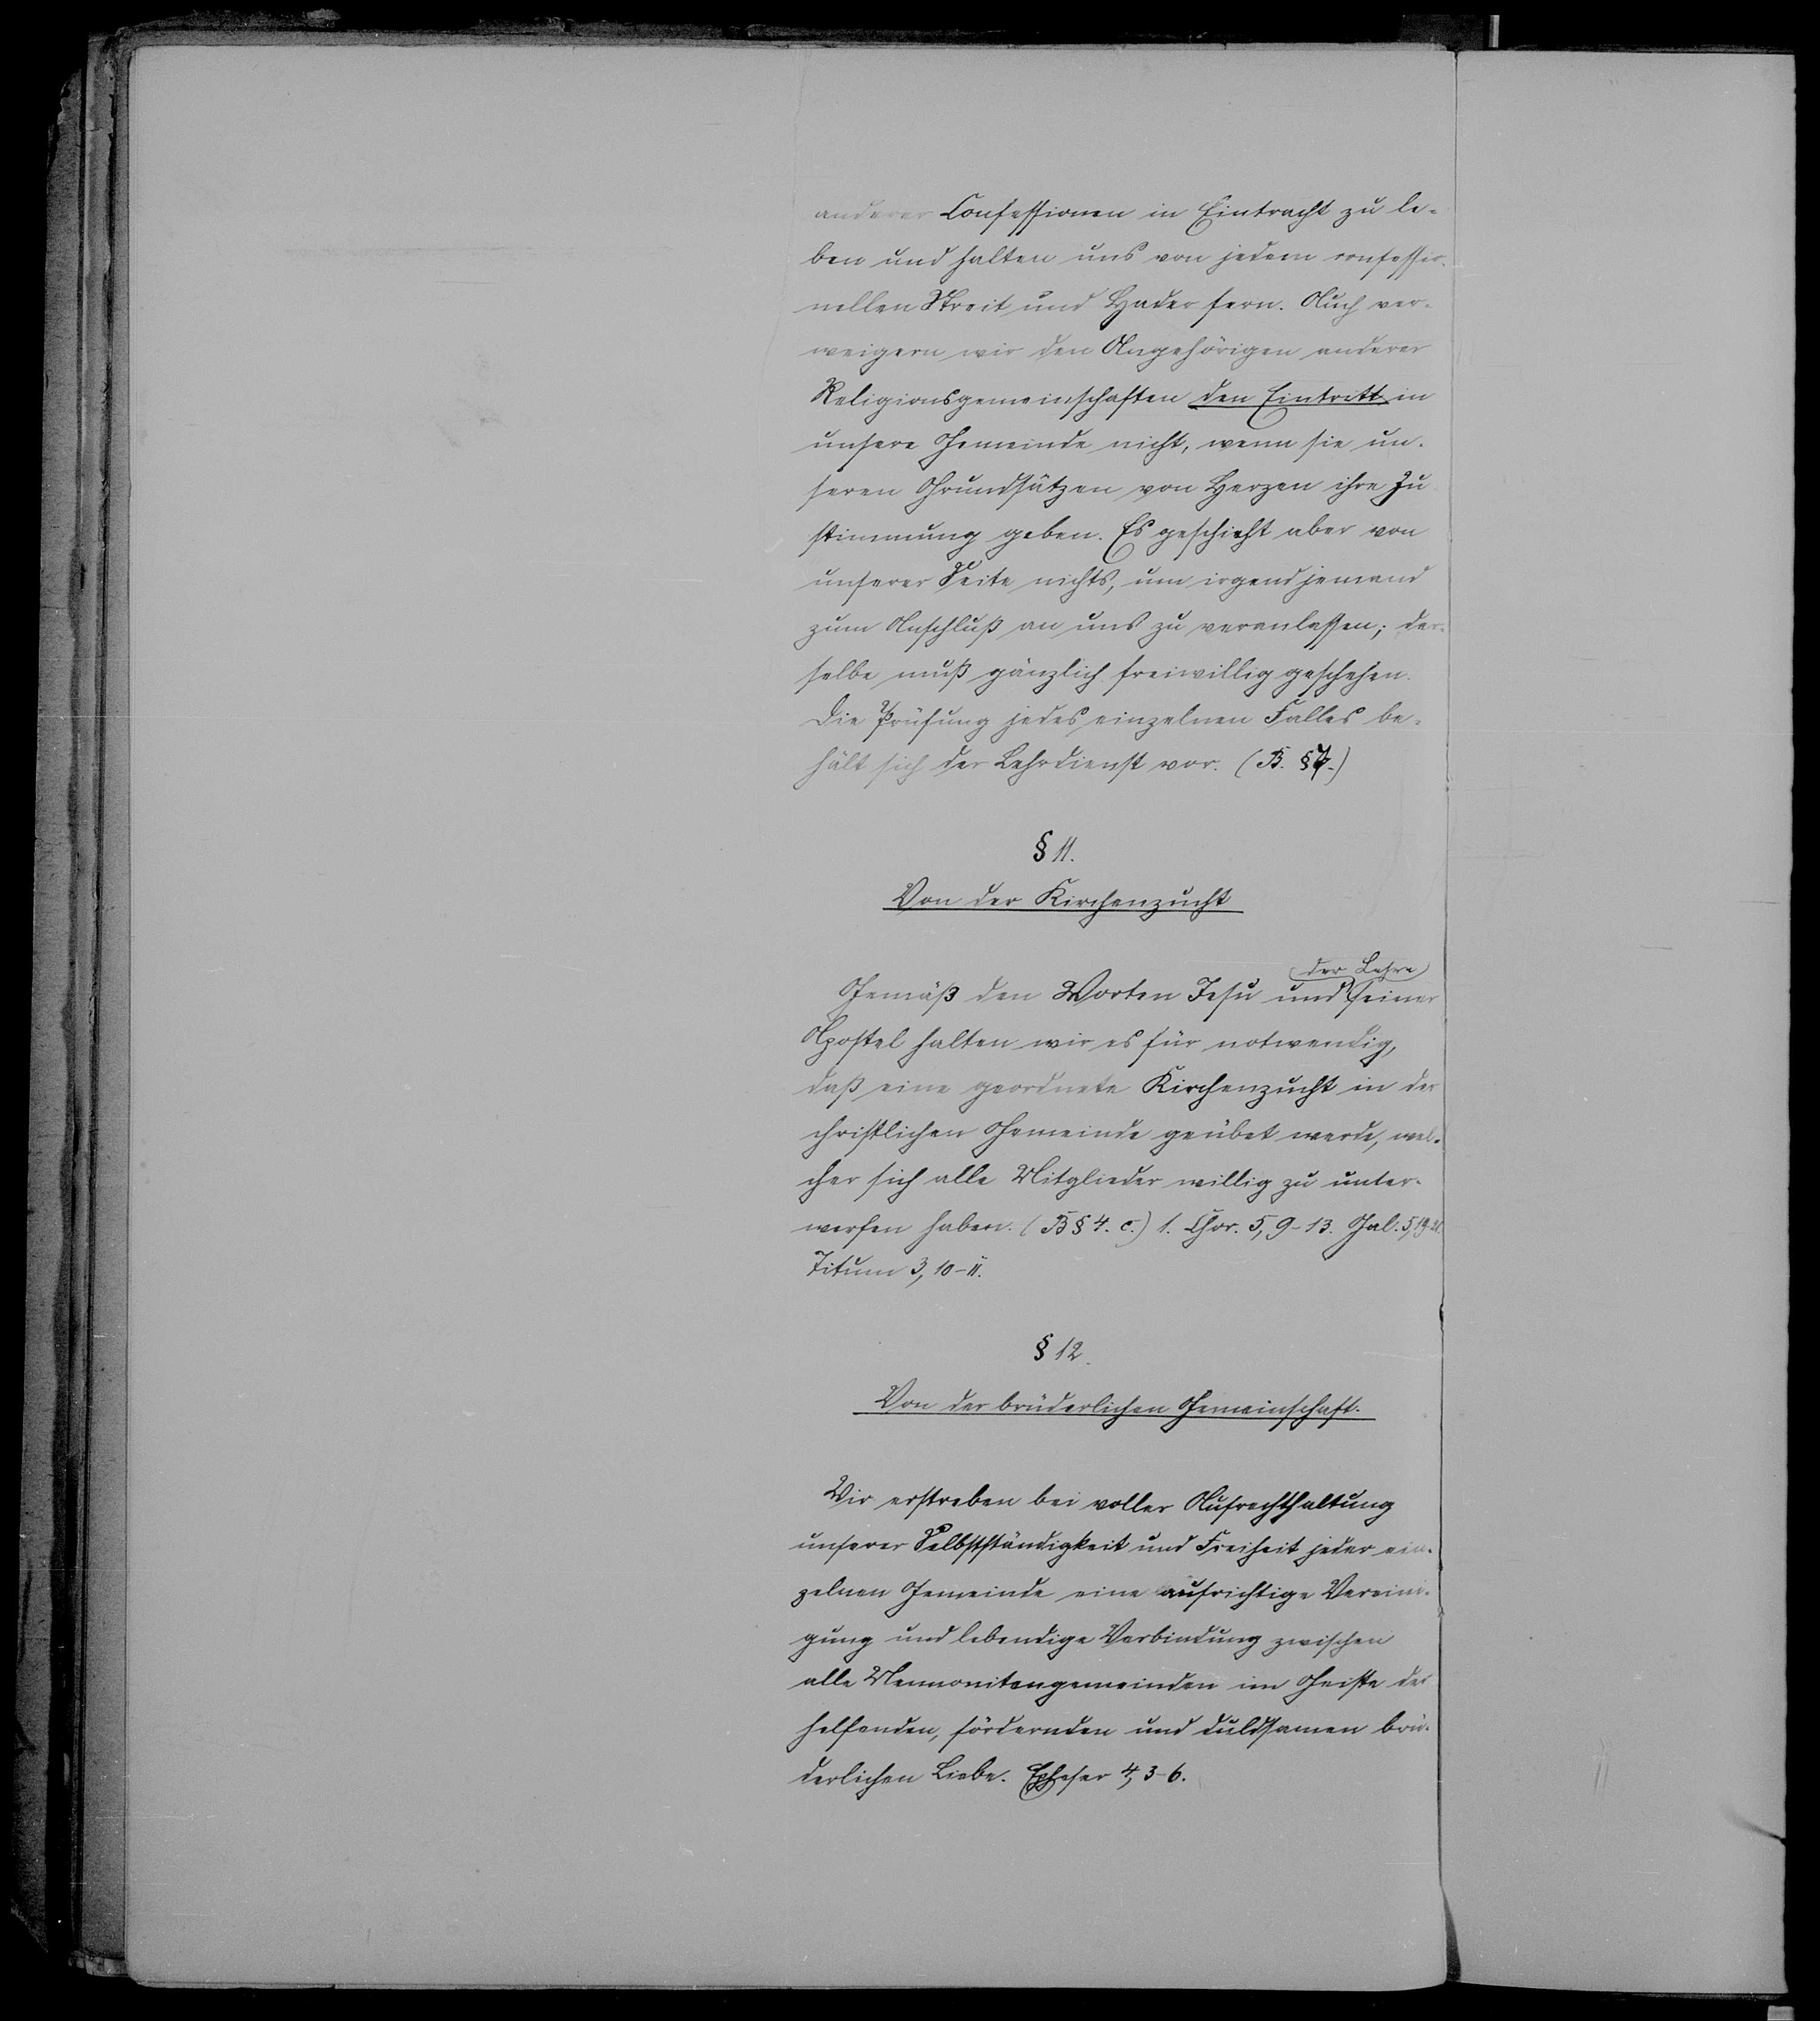 anderer Confessionen in Eintracht zu le-
ben und halten uns von jedem confessio-
nellen Streit und Hader fern. Auch ver-
weigern wir den Angehörigen anderer
Religionsgemeinschaften den Eintritt in
unsere Gemeinde nicht, wenn sie un-
seren Grundsätzen von Herzen ihre Zu
stimmung geben. Es geschieht aber von
unserer Seite nichts, um irgend jemand
zum Anschluß an uns zu veranlassen; der-
selbe muß gänzlich freiwillig geschehen.
Die Prüfung jedes einzelnen Falles be-
hält sich der Lehrdienst vor. (B. § 7.)
§ 11.
Von der Kirchenzucht
(der Lehre)
Gemäß den Worten Jesu und seiner
Apostel halten wir es für notwendig,
daß eine geordnete Kirchenzucht in der
christlichen Gemeinde geübet werde, wel-
cher sich alle Mitglieder willig zu unter-
werfen haben. (B § 4. c.) 1. Chor. 5, 9-13. Gal. 5, 19-21.
Titum 3, 10-11.
§ 12.
Von der brüderlichen Gemeinschaft.
Wir erstreben bei voller Aufrechthaltung
unserer Selbstständigkeit und Freiheit jeder ein-
zelnen Gemeinde eine aufrichtige Vereini-
gung und lebendige Verbindung zwischen
alle Mennonitengemeinden im Geiste der
helfenden, fördernden und duldsamen brü-
derlichen Liebe. Epheser 4, 3-6.